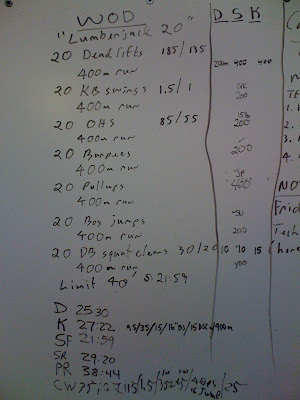 WOD
"Lumberjack 20"
D S K
20 Deadlifts 185/135
400m run 200m 400 400
20 KB swings 1.5/1
400m run 200
20 OHS 85/55 15lb
400m run 200
20 Burpees
400m run 200
20 Pullups JP
400m run 400
20 Box jumps SU
400m run 200
20 DB squat cleans 30/20 10 10 15
400m run 400
Limit 40' S: 21:59
D 25:30
K 27:22 95/35/15/16"BJ/15 DSC/400m
SF 21:59
SR 29:20
PR 38:44
CW
NOT
Frid
Tech
(here